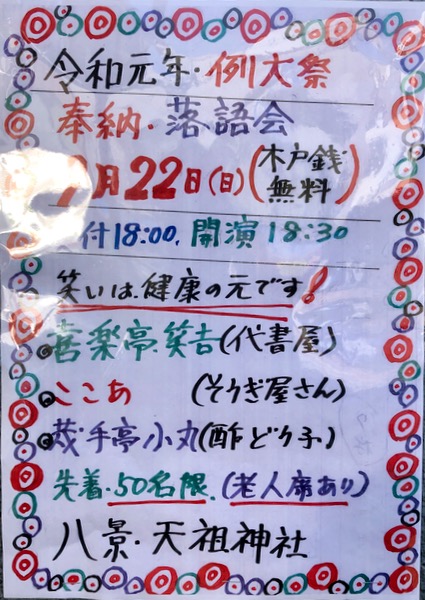 令和元年・例大祭
奉納・落語会
月22日(日)(木戸銭無料)
付18:00, 開演18:30
笑いは健康の元です!
喜楽亭笑吉(代書屋)
ここあ (そうぎ屋さん)
手亭小丸(酢どり子)
先着・50名限. (老人席あり)
八景・天祖神社